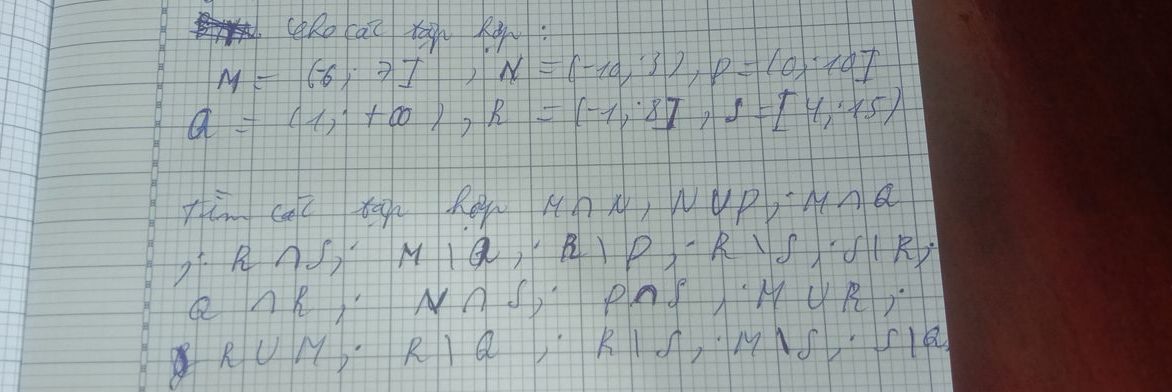 cho các tập hợp :
M = (-6; 7] , N = (-10; 3) , P = (0; 10]
Q = (1; +∞) , R = (-1; 8] , S = [4; 15)
Tìm các tập hợp M∩N, N∪P; M∩Q
; R∩S; M\Q; R\P; R\S; S\R;
Q∩R; N∩S; P∩S; M∪R;
R∪M; R\Q; R\S; M\S; S\Q